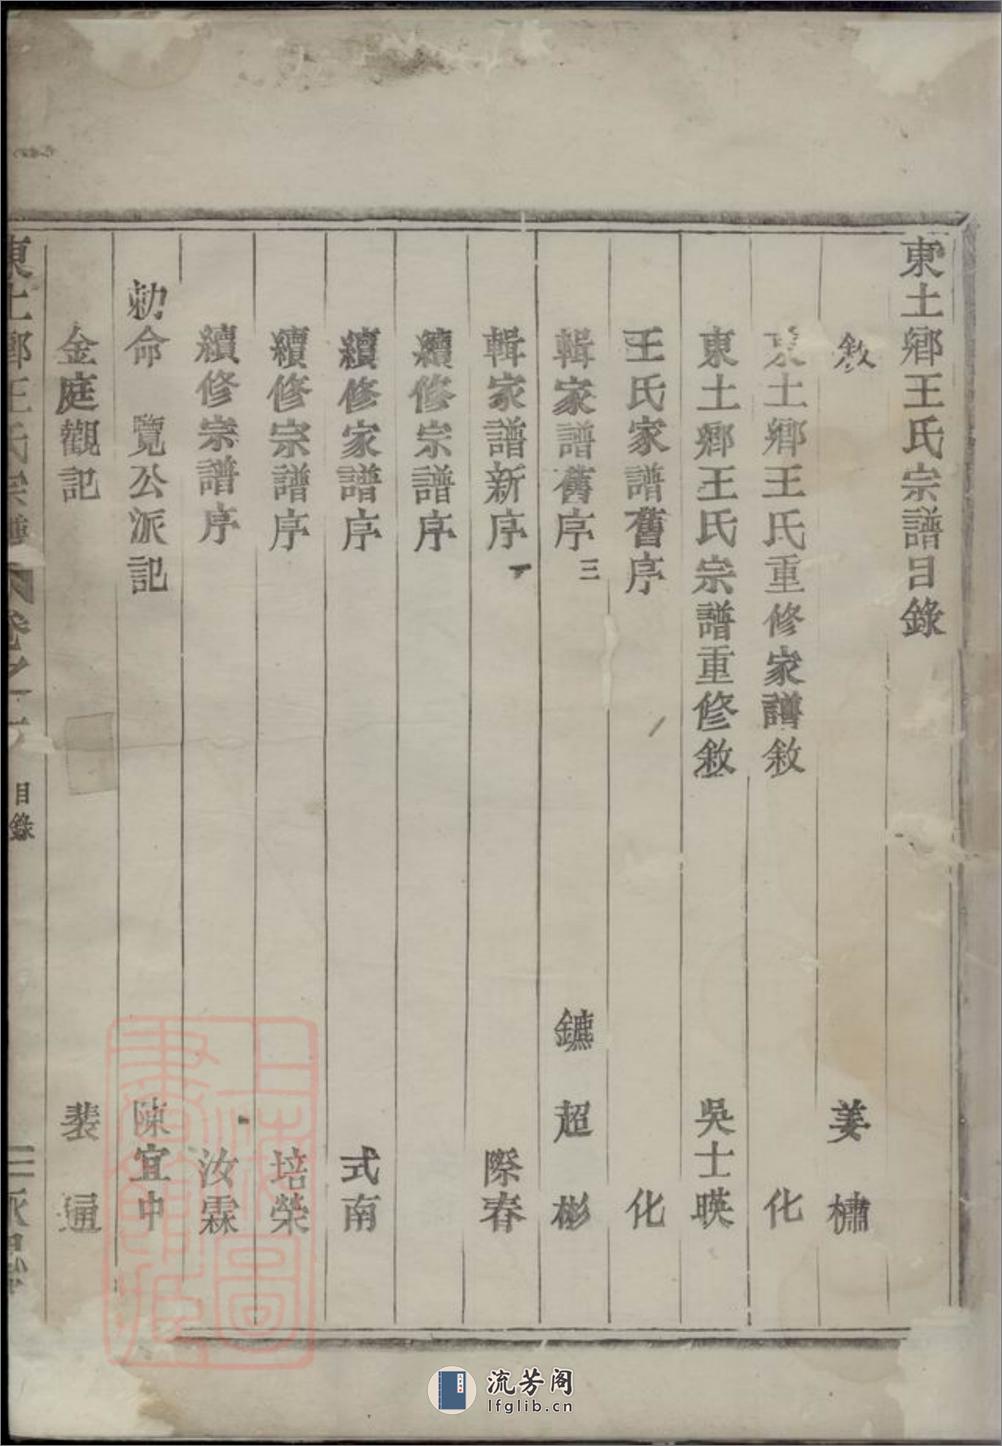 東土鄉王氏宗譜目錄
敘 姜橚
東土鄉王氏重修家譜敘 化
東土鄉王氏宗譜重修敘 吳士暎
王氏家譜舊序 化
輯家譜舊序三 鑣 超 彬
輯家譜新序 際春
續修宗譜序
續修家譜序 式南
續修宗譜序 培榮
續修宗譜序 汝霖
勅命 覽公派記 陳宜中
金庭觀記 裴通
東土鄉王氏宗譜 卷之 目錄
上海圖書館藏
流芳阁
lfglib.cn